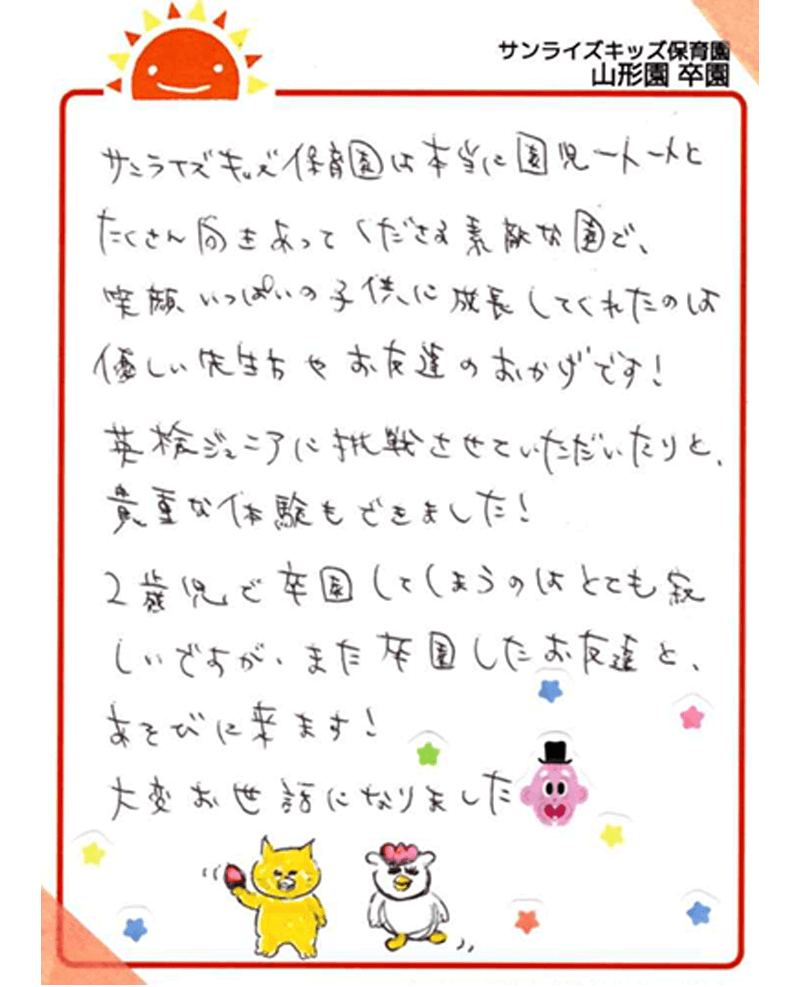 サンライズキッズ保育園
山形園 卒園
サンライズキッズ保育園は本当に園児一人一人と
たくさん向きあってくださる素敵な園で、
笑顔いっぱいの子供に成長してくれたのは
優しい先生方やお友達のおかげです!
英検ジュニアに挑戦させていただいたりと、
貴重な体験もできました!
2歳児で卒園してしまうのはとても寂
しいですが、また卒園したお友達と、
あそびに来ます!
大変お世話になりました